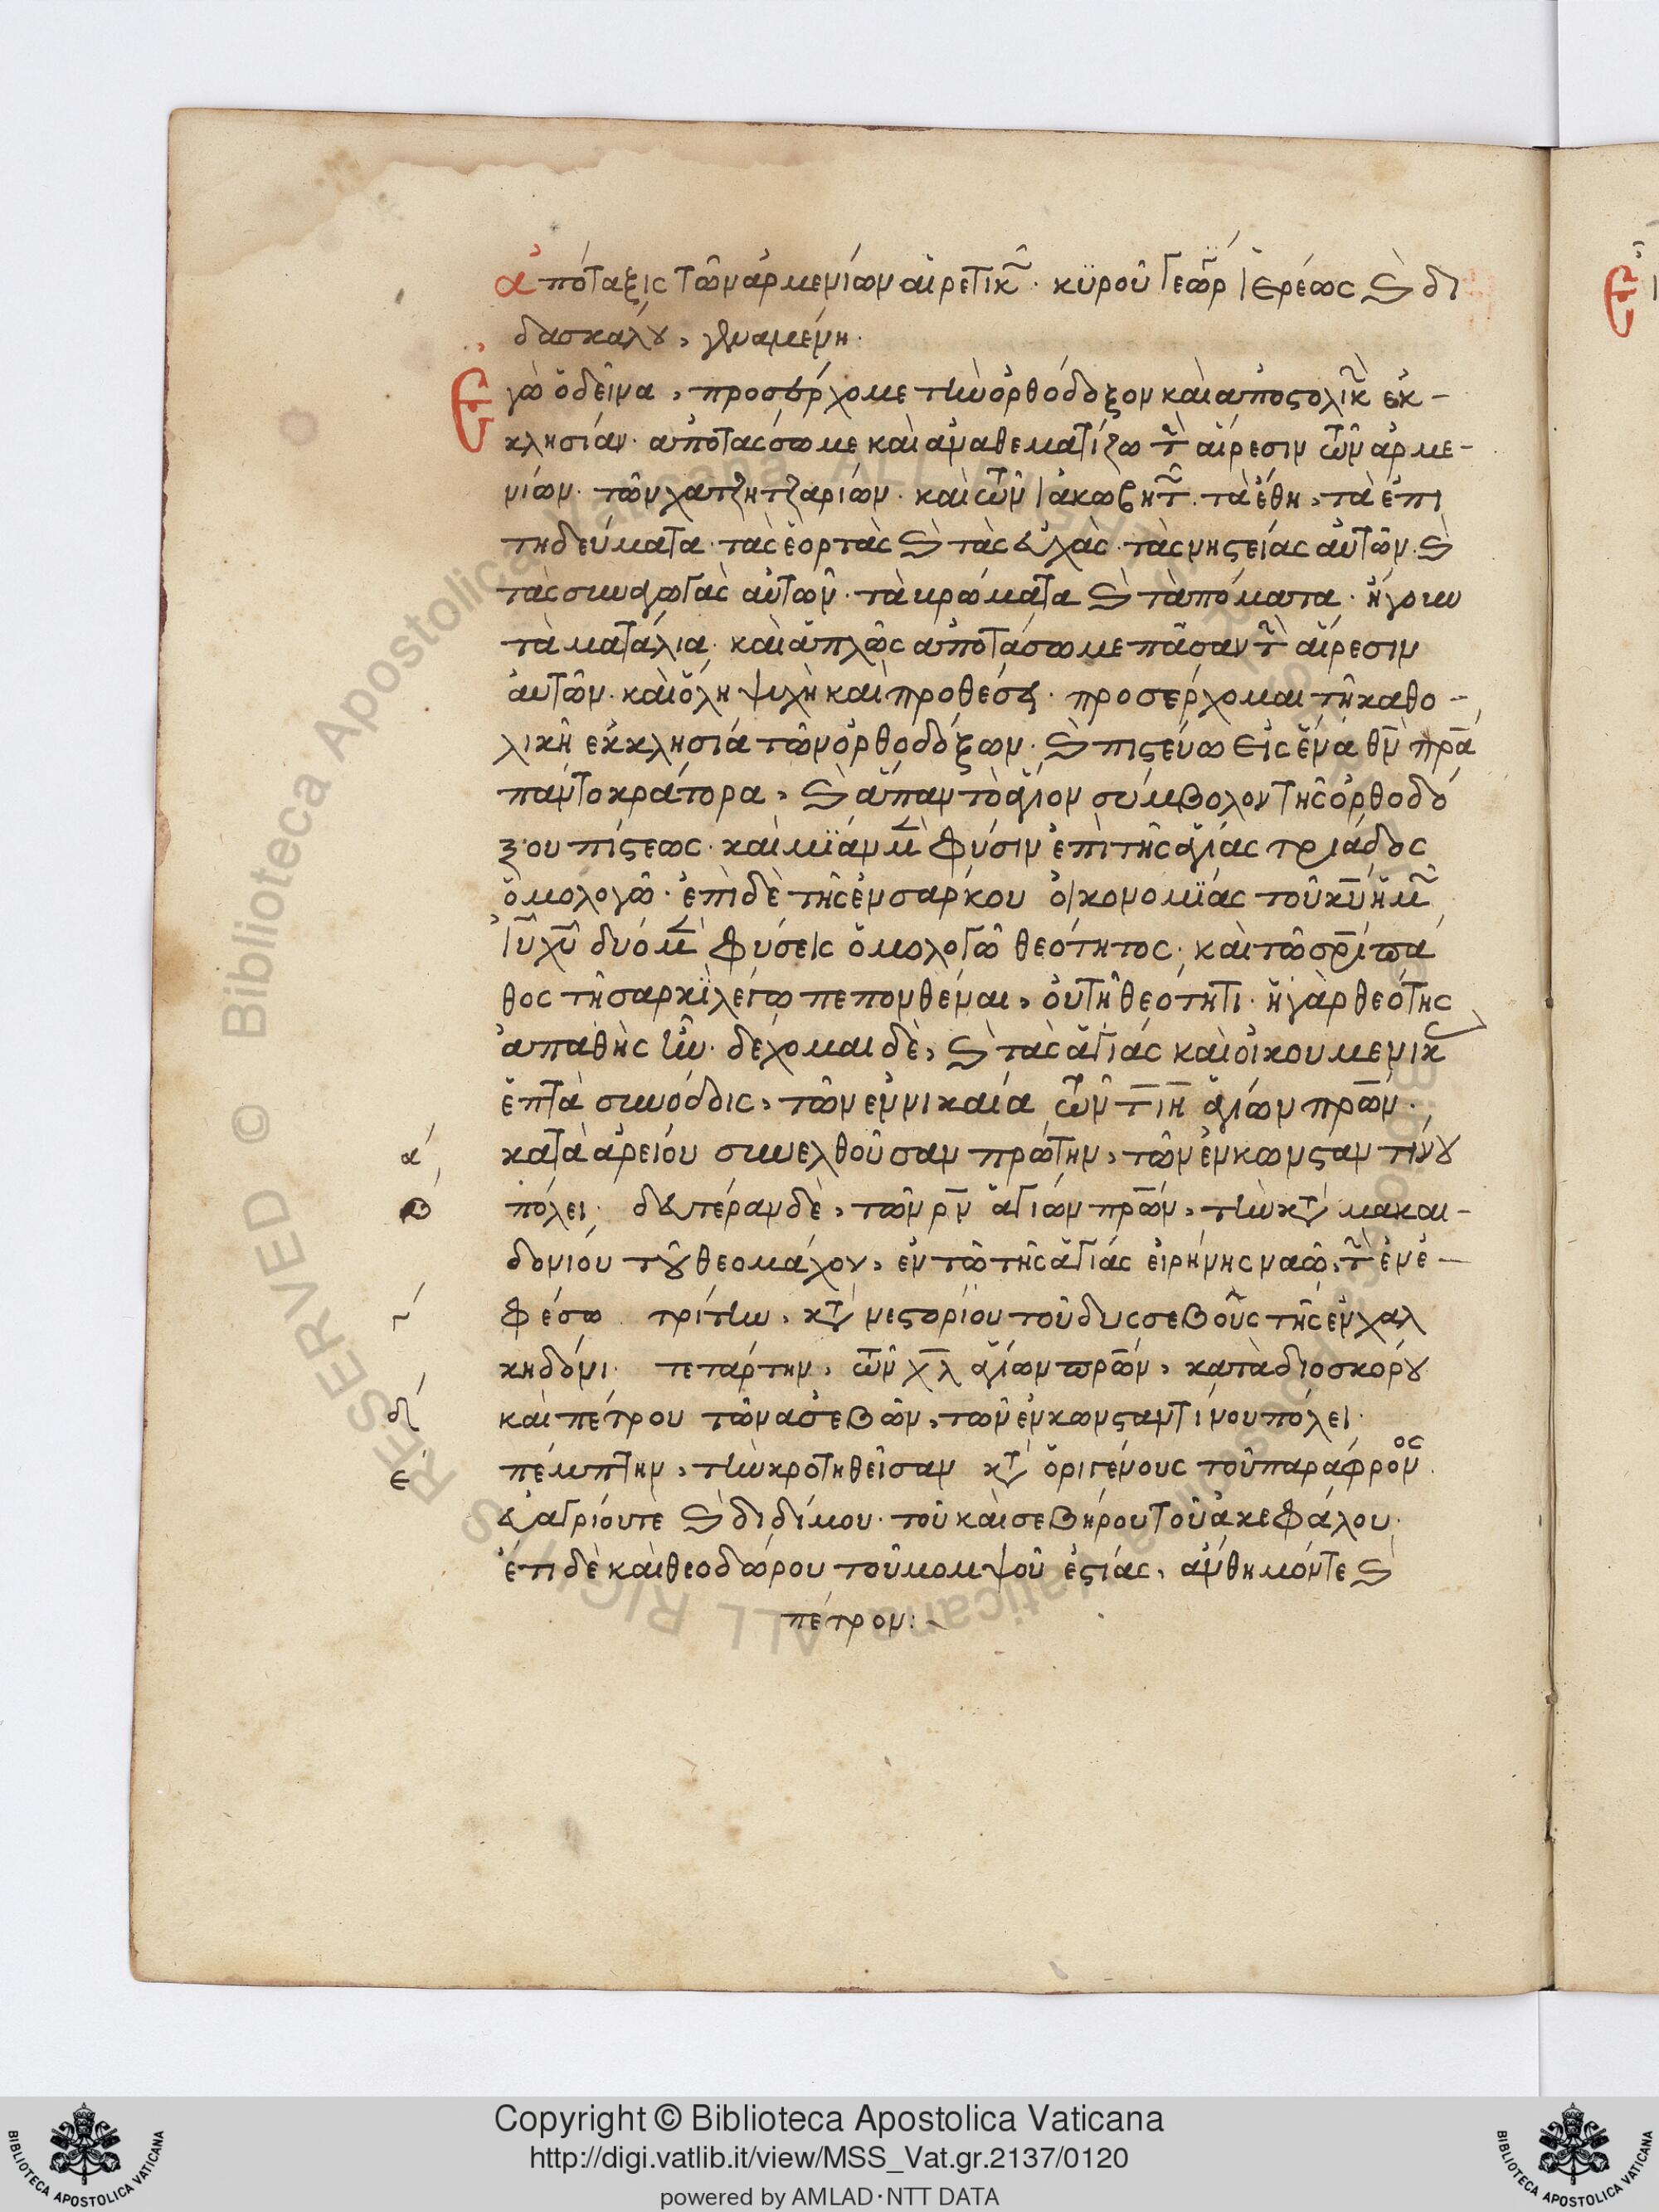 ἀπόταξις τῶν ἀρμενίων αἱρετικ῀· κϋροῦ Γεωρ ἱερέως ϗ δι
δασκάλου, γεναμένη·
Ἐγὼ ὁ δεῖνα, προσέρχομε τὴν ὀρθόδοξον καὶ ἀποστολικ῀ ἐκ-
κλησίαν· ἀποτασσωμε καὶ ἀναθεματίζω τ῀ αἵρεσιν τῶν ἀρμε-
νίων· τῶν χατζητζαρίων· καὶ τῶν ἰακωβητ῀· τὰ ἔθη, τὰ ἐπι
τηδεύματα· τὰς ἑορτὰς ϗ τὰς εὐχὰς· τὰς νηστείας αὐτῶν· ϗ
τὰς συναγωγὰς αὐτῶν· τὰ κρώματα ϗ τὰ πόματα· ἤγουν
τὰ ματάλια· καὶ ἁπλῶς ἀποτάσωμε πᾶσαν τ῀ αἵρεσιν
αὐτῶν· καὶ ὅλη ψυχὴ καὶ προθέσει· προσέρχομαι τῆ καθο-
λικῆ ἐκκλησία τῶν ὀρθοδόξων· ϗ πιστεύω εἰς ἕνα θν πρα
παντοκράτορα, ϗ ἅπαν τὸ ἅγιον σύμβολον τῆς ὀρθοδό
ξου πίστεως· καὶ μΐαν μ῀ φύσιν ἐπὶ τῆς ἁγίας τριάδος
ὁμολογῶ· ἐπὶ δὲ τῆς ἐνσάρκου οἰκονομΐας τοῦ κυ ἡμ῀
ἰυ χυ δύο μ῀ φύσεις ὁμολογῶ θεότητος· καὶ τῶ σρι πα
θος τῆ σαρκῒ λέγω πεπονθέναι, οὐ τῆ θεότητι· ἡ γὰρ θεότης
ἀπαθὴς ἦν· δέχομαι δὲ, ϗ τὰς ἁγίας καὶ οἰκουμενικ
ἑπτὰ συνόδοις, τῶν ἐν νικαία τῶν τιη ἁγίων πρων·
α κατὰ ἀρείου συνελθοῦσαν πρώτην, τῶν ἐν κωνσταντίνου
β πόλει· δευτέραν δὲ, τῶν ρν ἁγίων πρων, τὴν κτ μακαι-
δονίου τοῦ θεομάχου, ἐν τῶ τῆς ἁγίας εἰρήνης ναῶ, τ῀ ἐν ἐ-
γ φέσω τρίτην, κτ νεστορίου τοῦ δυσσεβοῦς τῆς ἐν χαλ
κηδόνι· τετάρτην, τῶν χλ ἁγίων πρων, κατὰ διοσκόρου
δ καὶ πέτρου τῶν ἀσεβῶν, τῶν ἐν κωνσταντίνου πόλει·
ε πέμπτην, τὴν κροτηθεῖσαν κτ ὁριγένους τοῦ παράφρον ος
εὐαγρίου τε ϗ διδίμου· τοῦ καὶ σεβήρου τοῦ ἀκεφάλου·
ἔτι δὲ καὶ θεοδώρου τοῦ μομψοῦ ἑστίας, ἀνθημόν τε ϗ
πέτρον:
Copyright © Biblioteca Apostolica Vaticana
http://digi.vatlib.it/view/MSS_Vat.gr.2137/0120
powered by AMLAD·NTT DATA